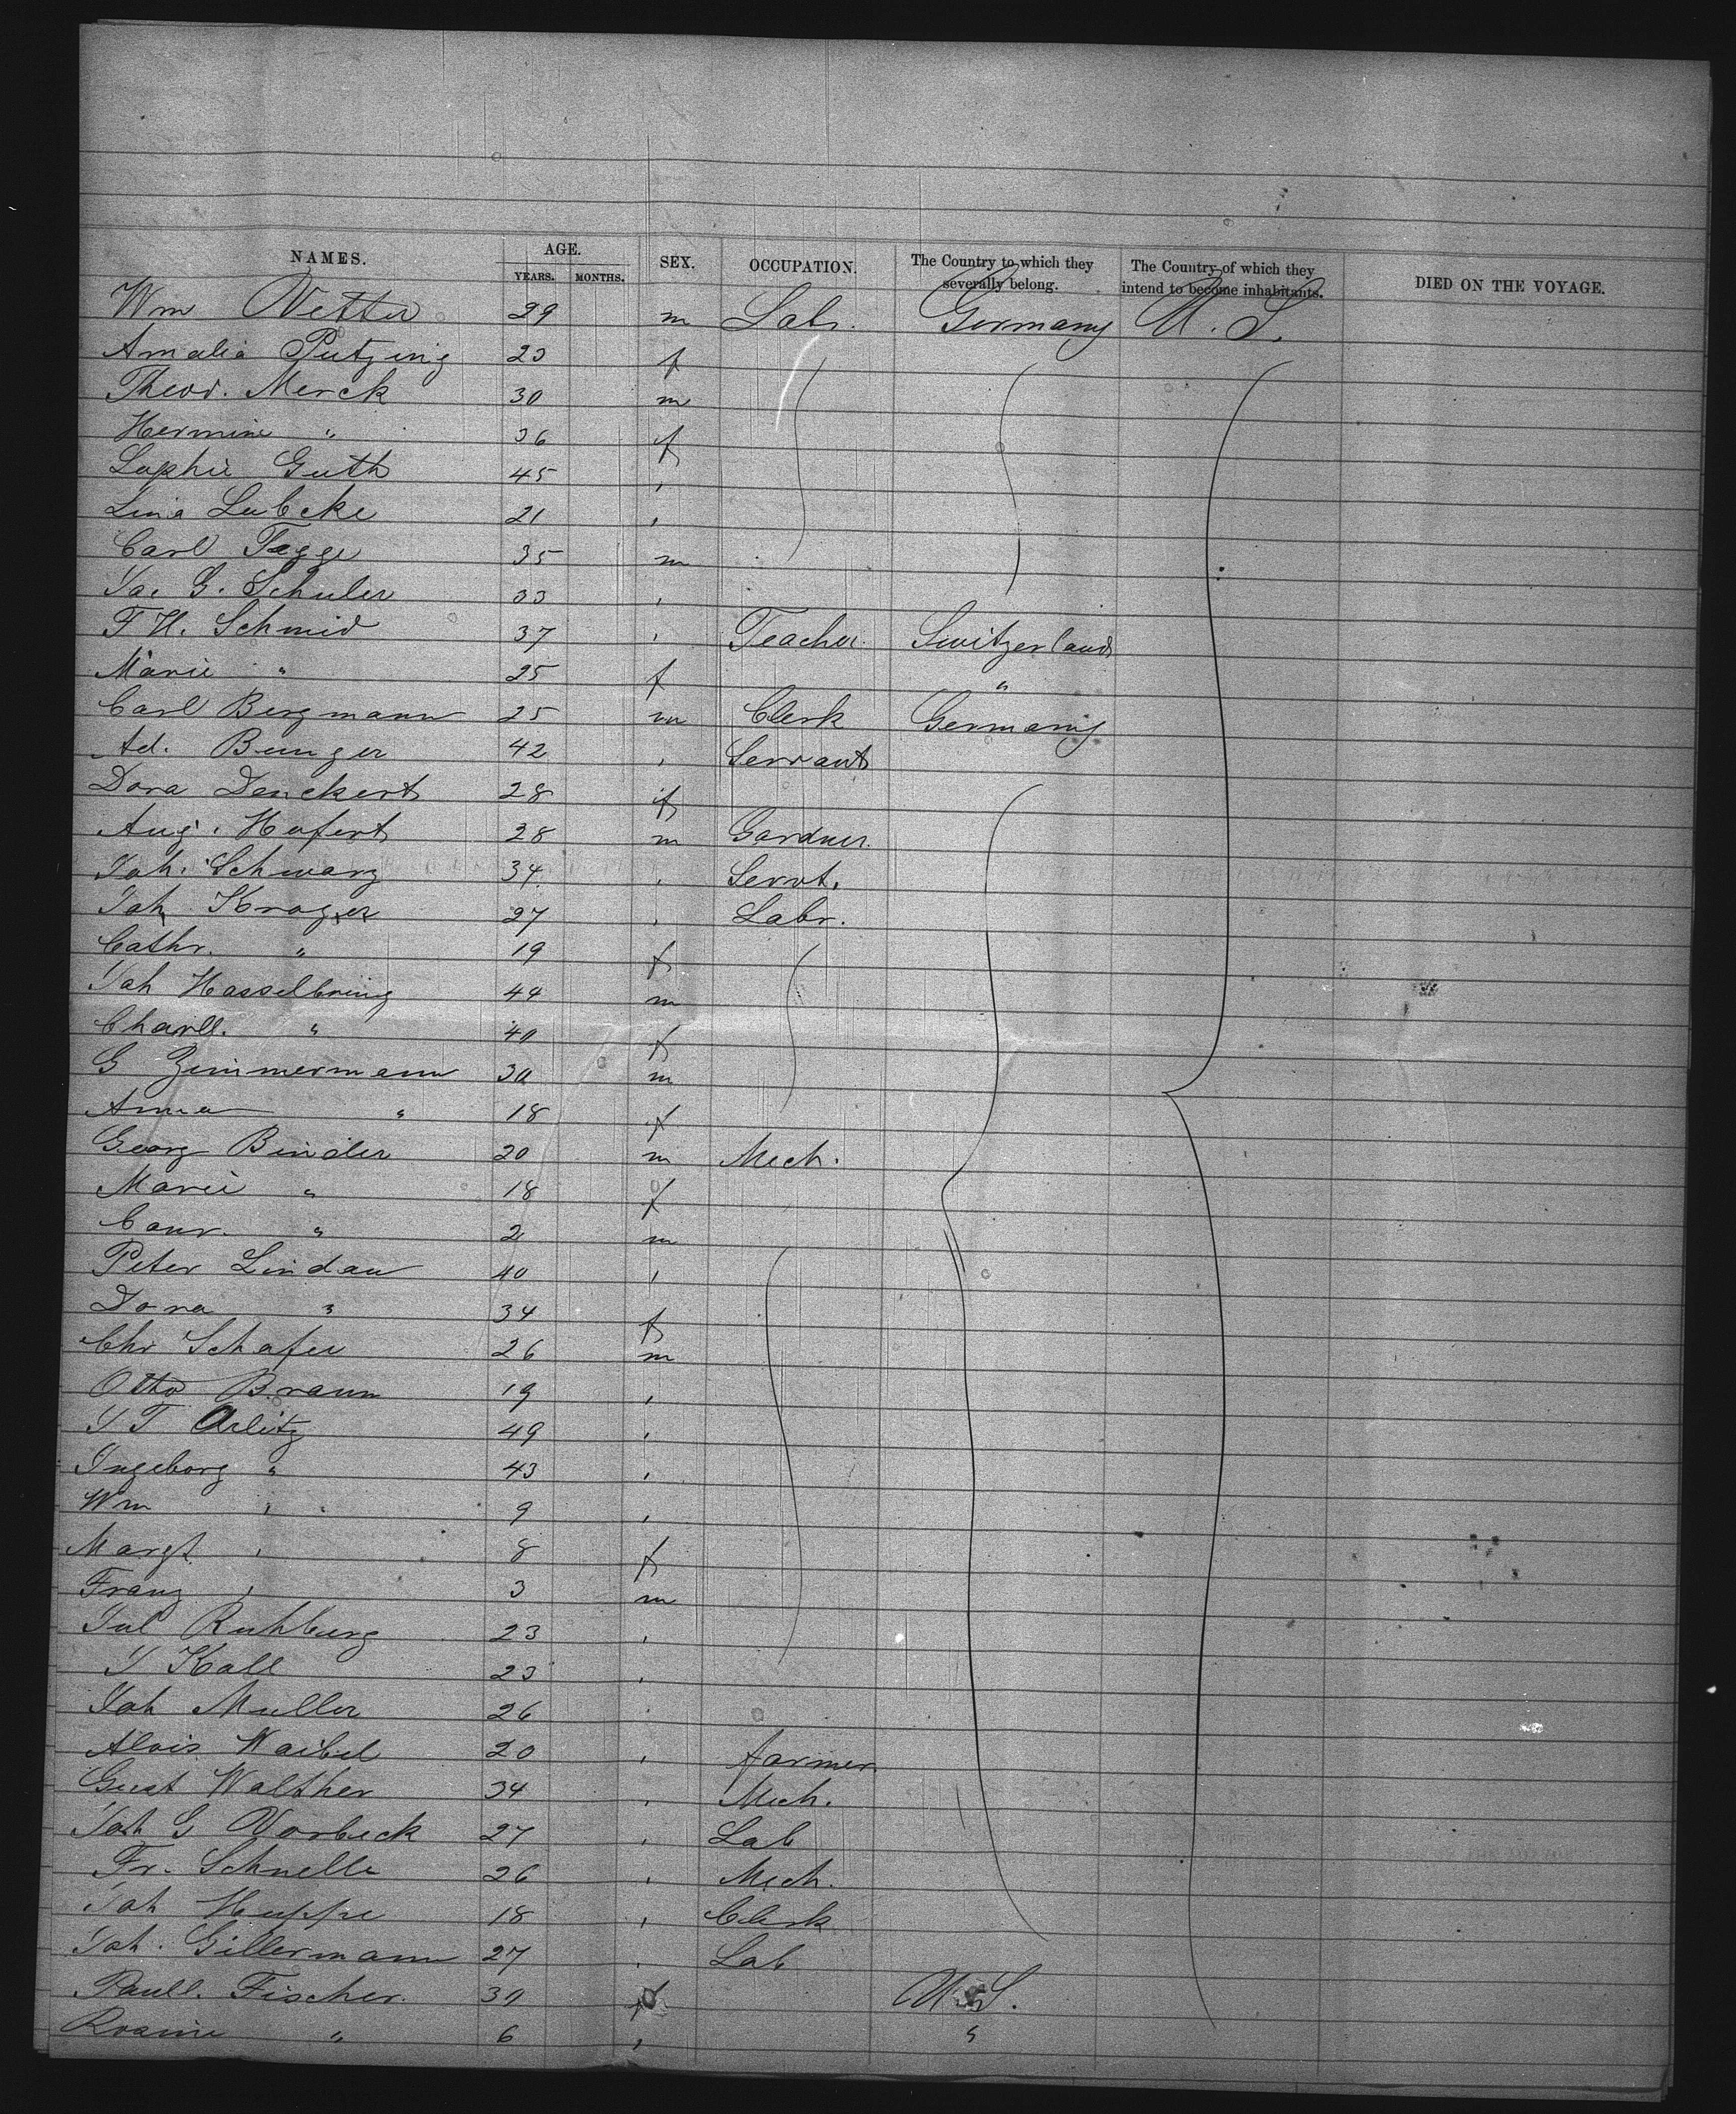 NAMES. AGE. YEARS. MONTHS. SEX. OCCUPATION. The Country to which they severally belong. The Country of which they intend to become inhabitants. DIED ON THE VOYAGE.
Wm Vetter 29 m Labr. Germany U. S.
Amalia Putzing 23 f
Theod. Merck 30 m
Hermine " 36 f
Sophie Guth 45 '
Lina Lubcke 21 '
Carl Tagge 35 m
Jac G. Schuler 33 '
F H. Schmid 37 ' Teacher. Switzerland
Marie " 25 f "
Carl Bergmann 25 m Clerk Germany
Ad. Bunger 42 ' Servant
Dora Denckert 28 f
Aug. Hafert 28 m Gardner.
Joh. Schwarz 34 ' Servt.
Joh Kroger 27 ' Labr.
Cathr. " 19 f
Joh Hasselbring 44 m
Charll. " 40 f
G Zimmermann 30 m
Anna " 18 f
Georg Binder 20 m Mech.
Marie " 18 f
Conr. " 2 m
Peter Lindau 40 '
Dora " 34 f
Chr Schafer 26 m
Otto Braun 19 '
J T Arlitz 49 '
Ingeborg " 43 '
Wm " 9 '
Margt. ' 8 f
Franz ' 3 m
Jul Ruhburg 23 '
J Kall 23 '
Joh Muller 26 '
Alois Waibel 20 ' farmer
Gust Walther 34 ' Mech.
Joh G Vorbeck 27 ' Lab
Fr. Schnelle 26 ' Mech.
Joh Huppe 18 ' Clerk
Joh. Gillermann 27 ' Lab
Paull. Fischer. 30 f U.S.
Rosine " 6 ' "